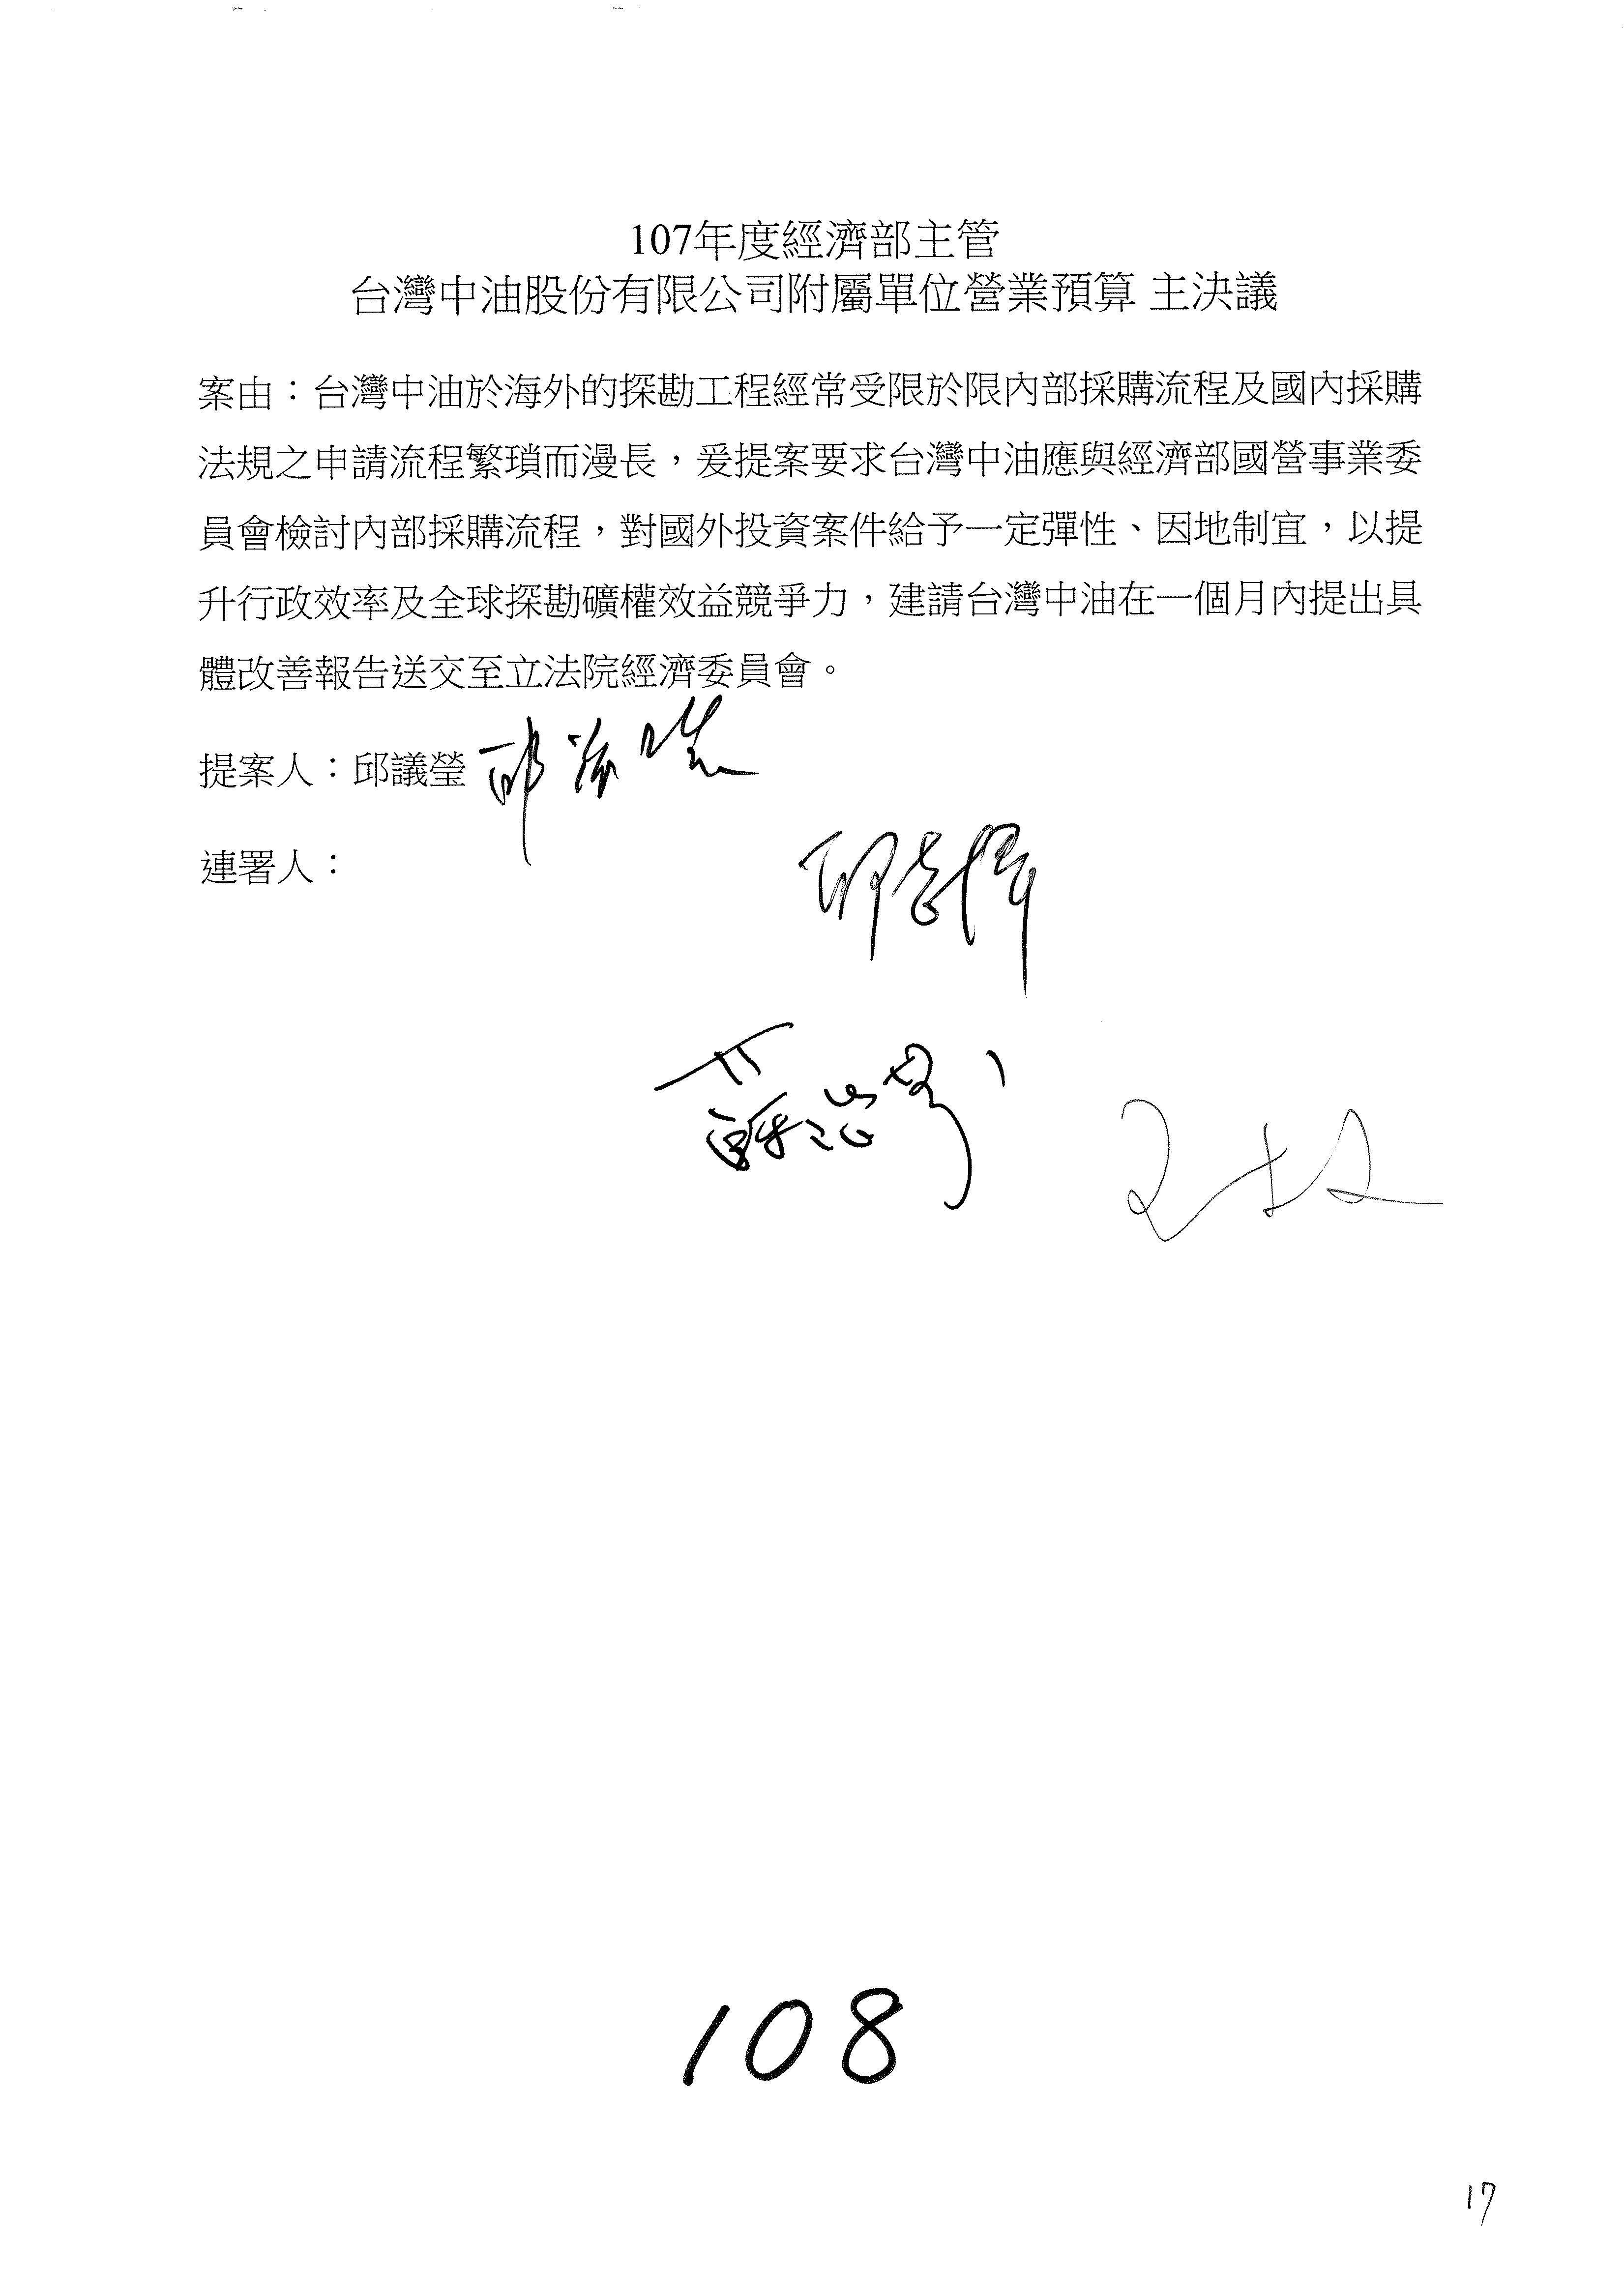 107年度經濟部主管
台灣中油股份有限公司附屬單位營業預算 主決議
案由：台灣中油於海外的探勘工程經常受限於限內部採購流程及國內採購
法規之申請流程繁瑣而漫長，爰提案要求台灣中油應與經濟部國營事業委
員會檢討內部採購流程，對國外投資案件給予一定彈性、因地制宜，以提
升行政效率及全球探勘礦權效益競爭力，建請台灣中油在一個月內提出具
體改善報告送交至立法院經濟委員會。
提案人：邱議瑩 邱議瑩
連署人：
邱志偉
蘇治芬
108
17